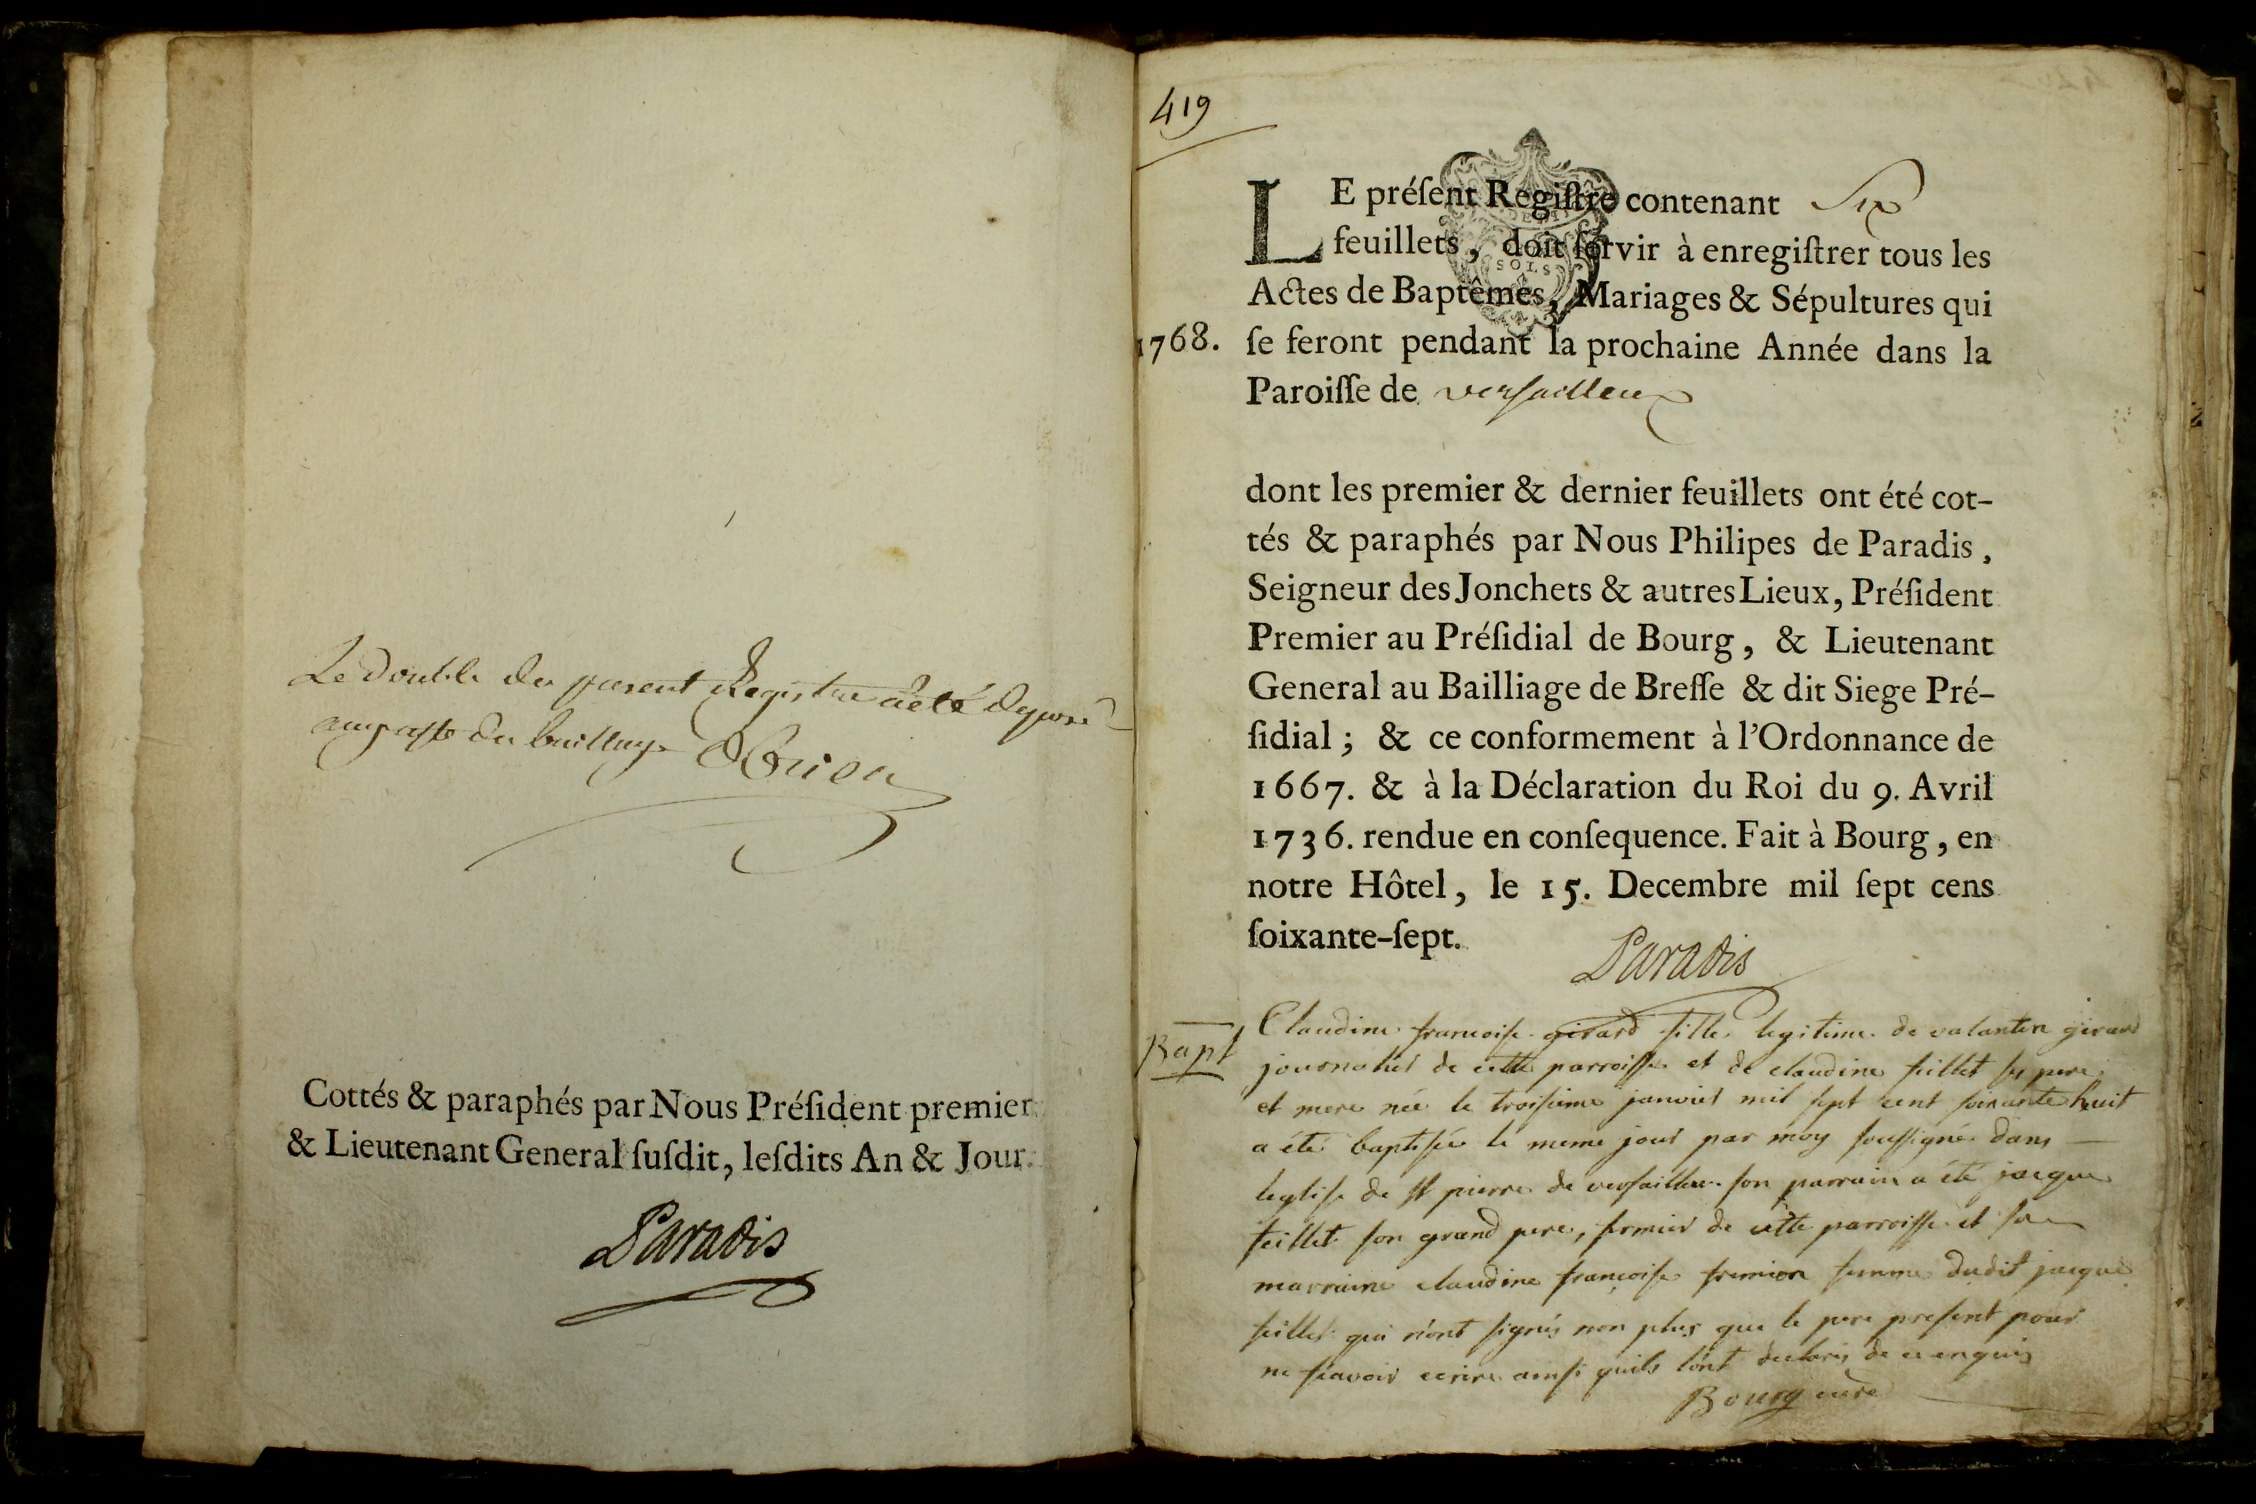 Le double du present Registre a eté deposé
au greffe du bailliage
Cottés & paraphés par Nous Préſident premier
& Lieutenant General ſuſdit, leſdits An & Jour.
Paradis
419
LE préſent Regiſtre contenant Six
feuillets, doit ſervir à enregiſtrer tous les
Actes de Baptêmes, Mariages & Sépultures qui
1768. ſe feront pendant la prochaine Année dans la
Paroiſſe de versailleux
dont les premier & dernier feuillets ont été cot-
tés & paraphés par Nous Philipes de Paradis,
Seigneur des Jonchets & autres Lieux, Préſident
Premier au Préſidial de Bourg, & Lieutenant
General au Bailliage de Breſſe & dit Siege Pré-
ſidial; & ce conformement à l'Ordonnance de
1667. & à la Déclaration du Roi du 9. Avril
1736. rendue en conſequence. Fait à Bourg, en
notre Hôtel, le 15. Decembre mil ſept cens
ſoixante-ſept.
Paradis
Bapt Claudine francoise girard fille legitime de valantin girard
journalier de cette parroisse et de claudine feillet ses pere
et mere née le troisieme janvier mil sept cent soixante huit
a été baptisée le meme jour par moy soussigné dans
leglise de st pierre de versailleux son parrain a été jacque
feillet son grand pere, fermier de cette parroisse et sa
marraine claudine françoise femme dudit jacque
feillet qui n'ont signés non plus que le pere present pour
ne scavoir ecrire ainsi quils l'ont declarés de ce enquis
Bourg curé